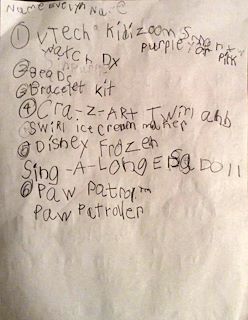 Name Evelyn Name
① VTech Kidizoom Smart
watch DX purple or pink
② Beads
③ Bracelet kit
④ Cra-Z-Art Twirl and
Swirl ice cream maker
⑤ Disney Frozen
Sing-A-Long Elsa Doll
⑥ Paw Patrol
Paw Patroller